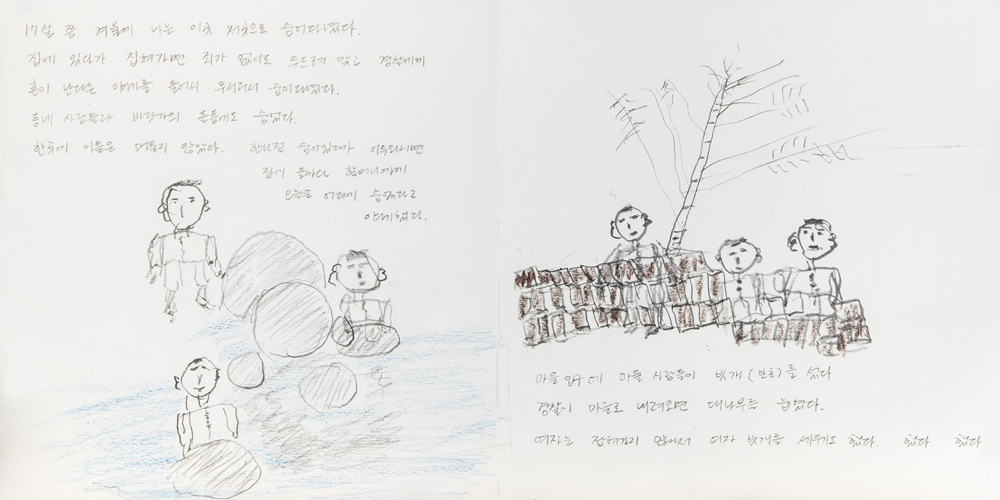 17살 쯤 겨울에 나는 이곳 저곳으로 숨어다녔다.
집에 있다가 잡혀가면 죄가 없어도 두드려 맞고 경찰에게
혼이 난다는 얘기를 들어서 무서워서 숨어다녔다.
동네 사람들과 바닷가의 돌틈에도 숨었다.
한곳에 이틀은 머물지 않았다. 혼자서 숨어있다가 어두워지면
집에 돌아와 할머니에게
오늘은 어디에 숨었다고
얘기했다.
마을 입구에 마을 사람들이 벗개(보초)를 섰다.
경찰이 마을로 내려오면 대나무를 눕혔다.
여자는 잡혀가지 않아서 여자 벗개를 세우기도 했다. 했다. 했다